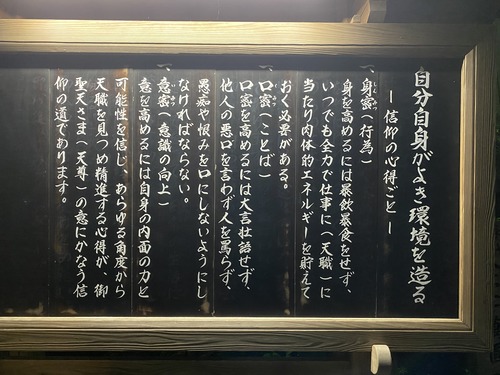 自分自身がよき環境を造る
―信仰の心得ごと―
一、身密（行為）
身を高めるには暴飲暴食をせず、
いつでも全力で仕事に（天職）に
当たり肉体的エネルギーを貯えて
おく必要がある。
一、口密（ことば）
口密を高めるには大言壮語せず、
他人の悪口を言わず人を罵らず、
愚痴や恨みを口にしないようにし
なければならない。
一、意密（意識の向上）
意を高めるには自身の内面の力と
可能性を信じ、あらゆる角度から
天職を見つめ精進する心得が、御
聖天さま（天尊）の意にかなう信
仰の道であります。